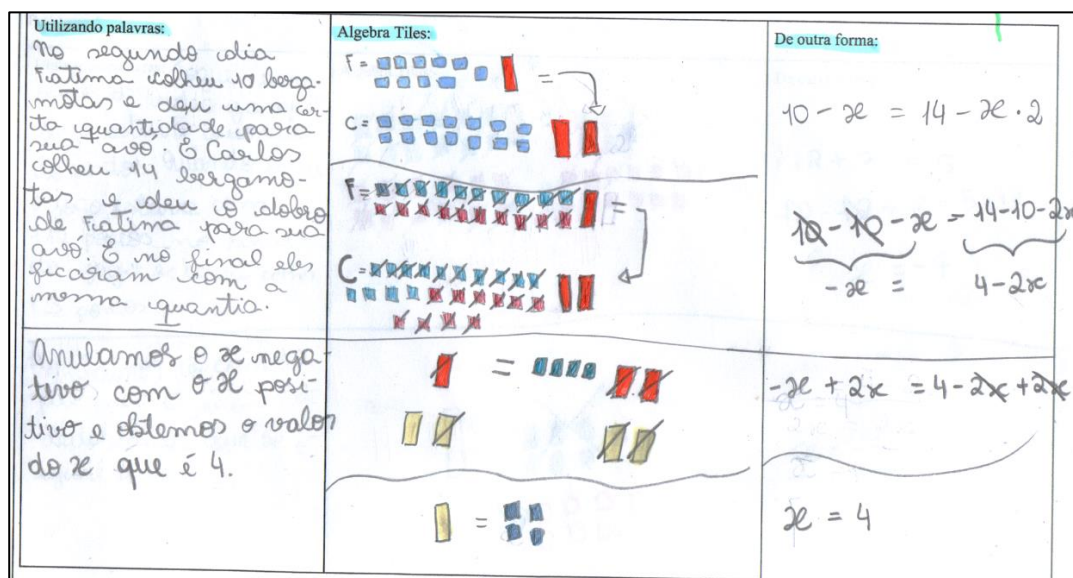 Utilizando palavras:
No segundo dia
Fatima colheu 10 berga-
motas e deu uma cer-
ta quantidade para
sua avó. E Carlos
colheu 14 bergamo-
tas e deu o dobro
de Fatima para sua
avó. E no final eles
ficaram com a
mesma quantia.
Anulamos o x nega-
tivo com o x posi-
tivo e obtemos o valor
do x que é 4.
Algebra Tiles:
F =
=
C =
F =
=
C =
=
=
De outra forma:
10 - x = 14 - x · 2
10 - 10 - x = 14 - 10 - 2x
-x = 4 - 2x
-x + 2x = 4 - 2x + 2x
x = 4